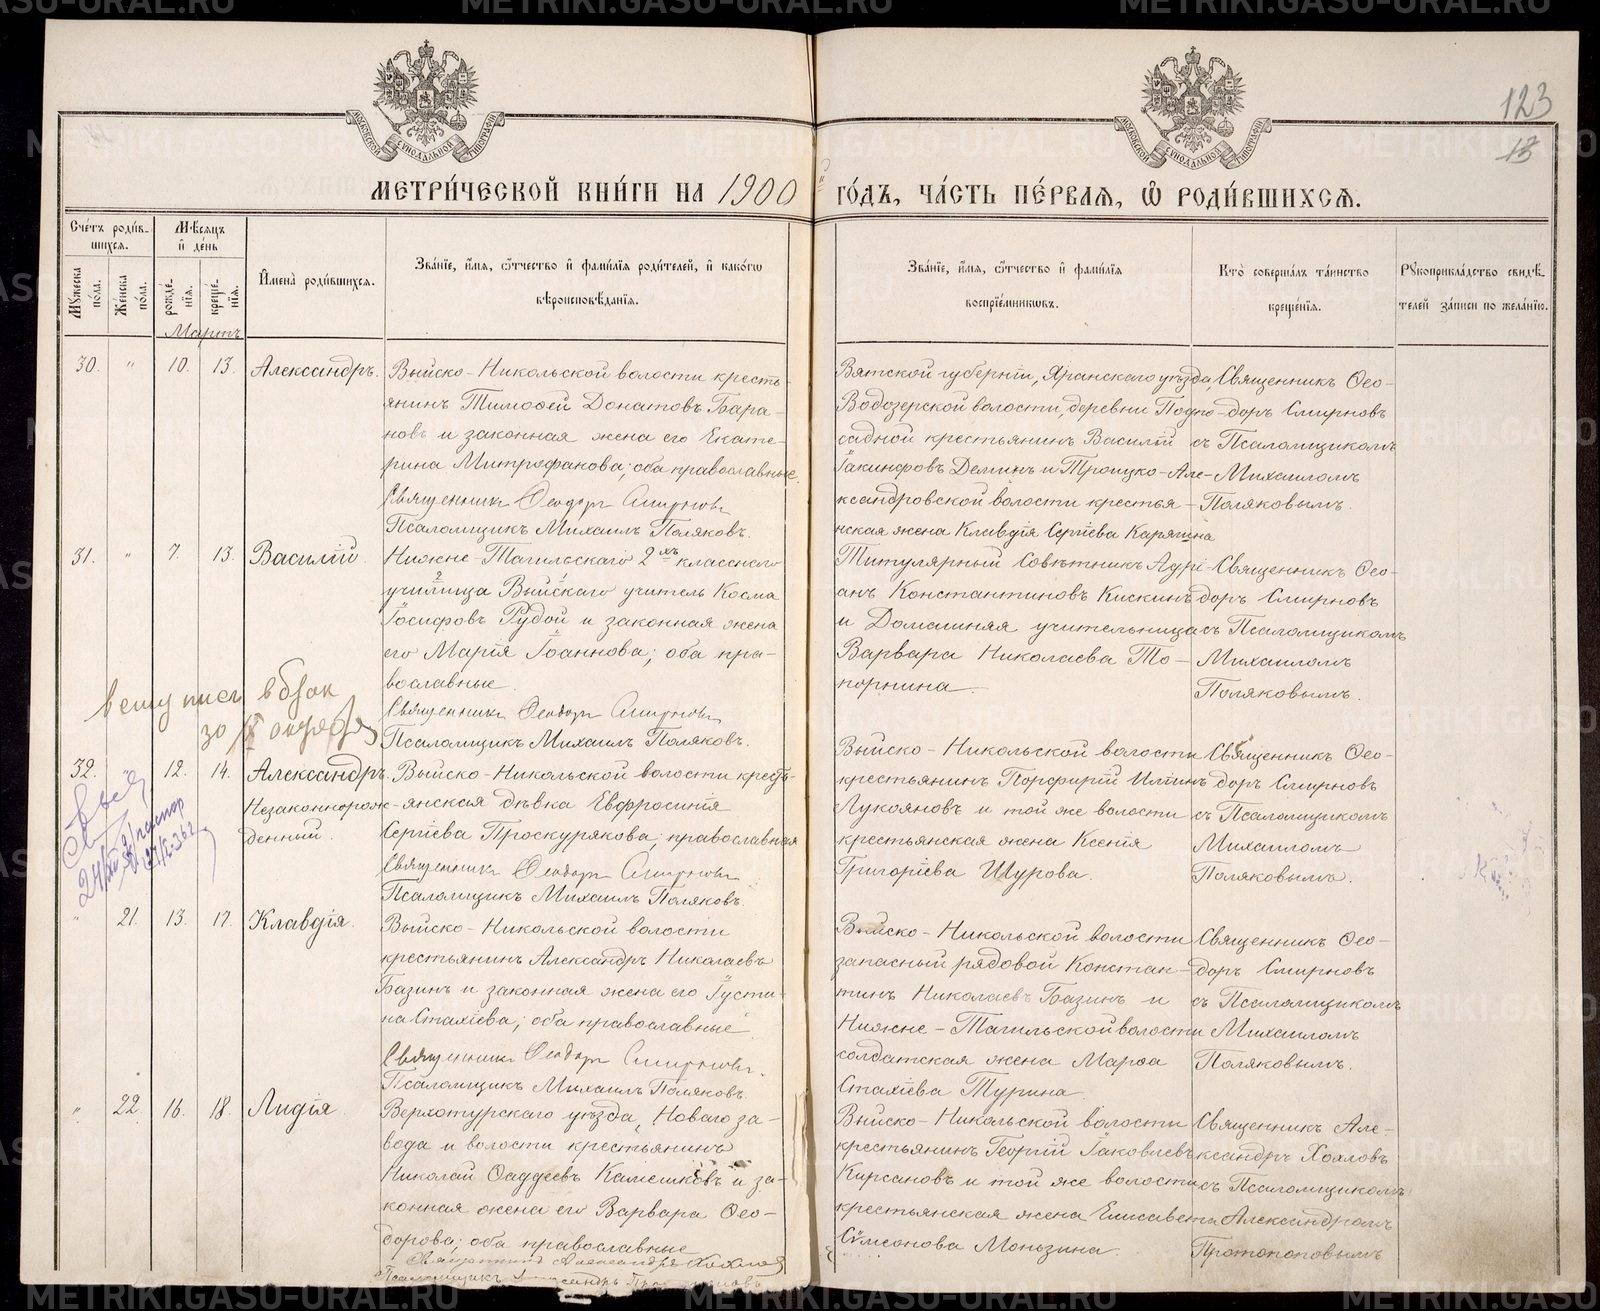 123
13
МЕТРИ́ЧЕСКОЙ КНИ́ГИ НА 1900й ГО́ДЪ, ЧА́СТЬ ПЕ́РВАѦ, Ѡ РОДИ́ВШИХСѦ.
Счетъ родив-
шихсѧ.
Мѣсѧцъ
и день
Мꙋжеска
пола.
Женска
пола.
рожде-
нїѧ.
креще-
нїѧ.
Имена родившихсѧ.
Званїе, имѧ, ѻтчество и фамилїѧ родителей, и какогѡ
вѣроисповѣданїѧ.
Званїе, имѧ, ѻтчество и фамилїѧ
воспрїемникѡвъ.
Кто совершалъ таинство
крещенїѧ.
Рꙋкоприкладство свидѣ-
телей записи по желанїю.
Мартъ
30. " 10. 13. Александръ.
Выйско-Никольской волости кресть-
янинъ Тимоѳей Донатовъ Бара-
новъ и законная жена его Екате-
рина Митрофанова; оба православные.
Священникъ Ѳеодоръ Смирновъ
Псаломщикъ Михаилъ Поляковъ.
Вятской губерніи, Яранскаго уѣзда,
Водозерской волости, деревни Подпо-
садной крестьянинъ Василій
Іакинфовъ Деминъ и Троицко-Але-
ксандровской волости крестья-
нская жена Клавдія Сергіева Карягина
Священникъ Ѳео-
доръ Смирновъ
съ Псаломщикомъ
Михаиломъ
Поляковымъ.
31. " 7. 13. Василій.
Нижне-Тагильскаго 2хъ класснаго
училища Выйскаго учитель Косма
Іосифовъ Рудой и законная жена
его Марія Іоаннова; оба пра-
вославные.
Священникъ Ѳеодоръ Смирновъ
Псаломщикъ Михаилъ Поляковъ.
Титулярный Совѣтникъ Адрі-
анъ Константиновъ Кискинъ
и Домашняя учительница
Варвара Николаева То-
порнина.
Священникъ Ѳео-
доръ Смирновъ
съ Псаломщикомъ
Михаиломъ
Поляковымъ.
в брак
30
32. " 12. 14. Александръ
Незаконнорож-
денный.
Выйско-Никольской волости кресть-
янская дѣвка Евфросинія
Сергіева Проскурякова; православная
Священникъ Ѳеодоръ Смирновъ
Псаломщикъ Михаилъ Поляковъ.
Выйско-Никольской волости
крестьянинъ Порфирій Иліинъ
Лукояновъ и той же волости
крестьянская жена Ксенія
Григоріева Шурова.
Священникъ Ѳео-
доръ Смирновъ
съ Псаломщикомъ
Михаиломъ
Поляковымъ.
" 21. 13. 17. Клавдія.
Выйско-Никольской волости
крестьянинъ Александръ Николаевъ
Базинъ и законная жена его Іусти-
на Стахіева; оба православные
Священникъ Ѳеодоръ Смирновъ.
Псаломщикъ Михаилъ Поляковъ.
Выйско-Никольской волости
запасный рядовой Констан-
тинъ Николаевъ Базинъ и
Нижне-Тагильской волости
солдатская жена Марѳа
Стахіева Турина.
Священникъ Ѳео-
доръ Смирновъ
съ Псаломщикомъ
Михаиломъ
Поляковымъ.
" 22. 16. 18. Лидія
Верхотурскаго уѣзда, Новаго за-
вода и волости крестьянинъ
Николай Ѳаддеевъ Камешковъ и за-
конная жена его Варвара Ѳео-
дорова; оба православные
Священникъ Александръ Хохловъ
Псаломщикъ Александръ
Выйско-Никольской волости
крестьянинъ Георгій Іаковлевъ
Кирсановъ и той же волости
крестьянская жена Елисавета
Сѵмеонова Моньзина.
Священникъ Але-
ксандръ Хохловъ
съ Псаломщикомъ
Александромъ
Протопоповымъ
METRIKI.GASO-URAL.RU